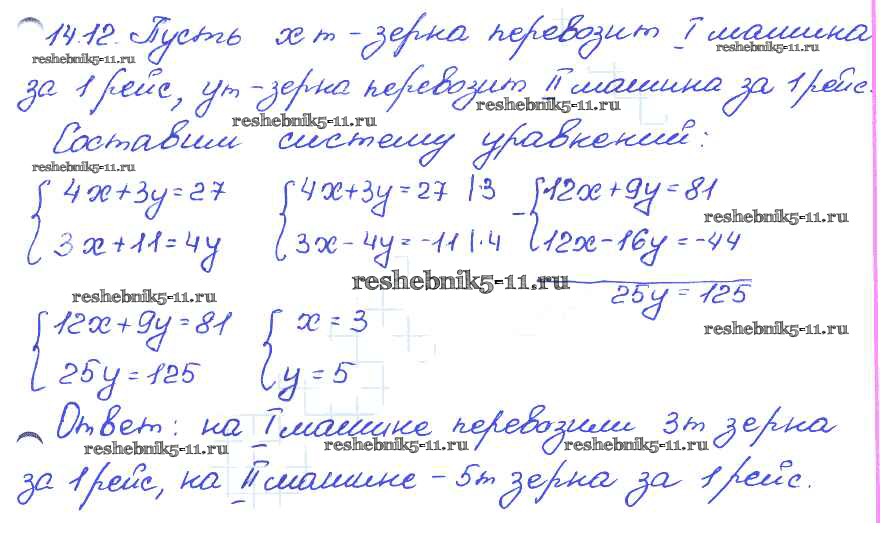 14.12. Пусть x т - зерна перевозит I машина
reshebnik5-11.ru reshebnik5-11.ru
за 1 рейс, y т - зерна перевозит II машина за 1 рейс.
reshebnik5-11.ru reshebnik5-11.ru
Составим систему уравнений:
reshebnik5-11.ru
{ 4x+3y=27 { 4x+3y=27 |·3 - { 12x+9y=81
reshebnik5-11.ru
3x+11=4y 3x-4y=-11 |·4 12x-16y=-44
reshebnik5-11.ru
25y=125
reshebnik5-11.ru
{ 12x+9y=81 { x=3
reshebnik5-11.ru
25y=125 y=5
Ответ: на I машине перевозили 3т зерна
reshebnik5-11.ru reshebnik5-11.ru reshebnik5-11.ru
за 1 рейс, на II машине - 5т зерна за 1 рейс.